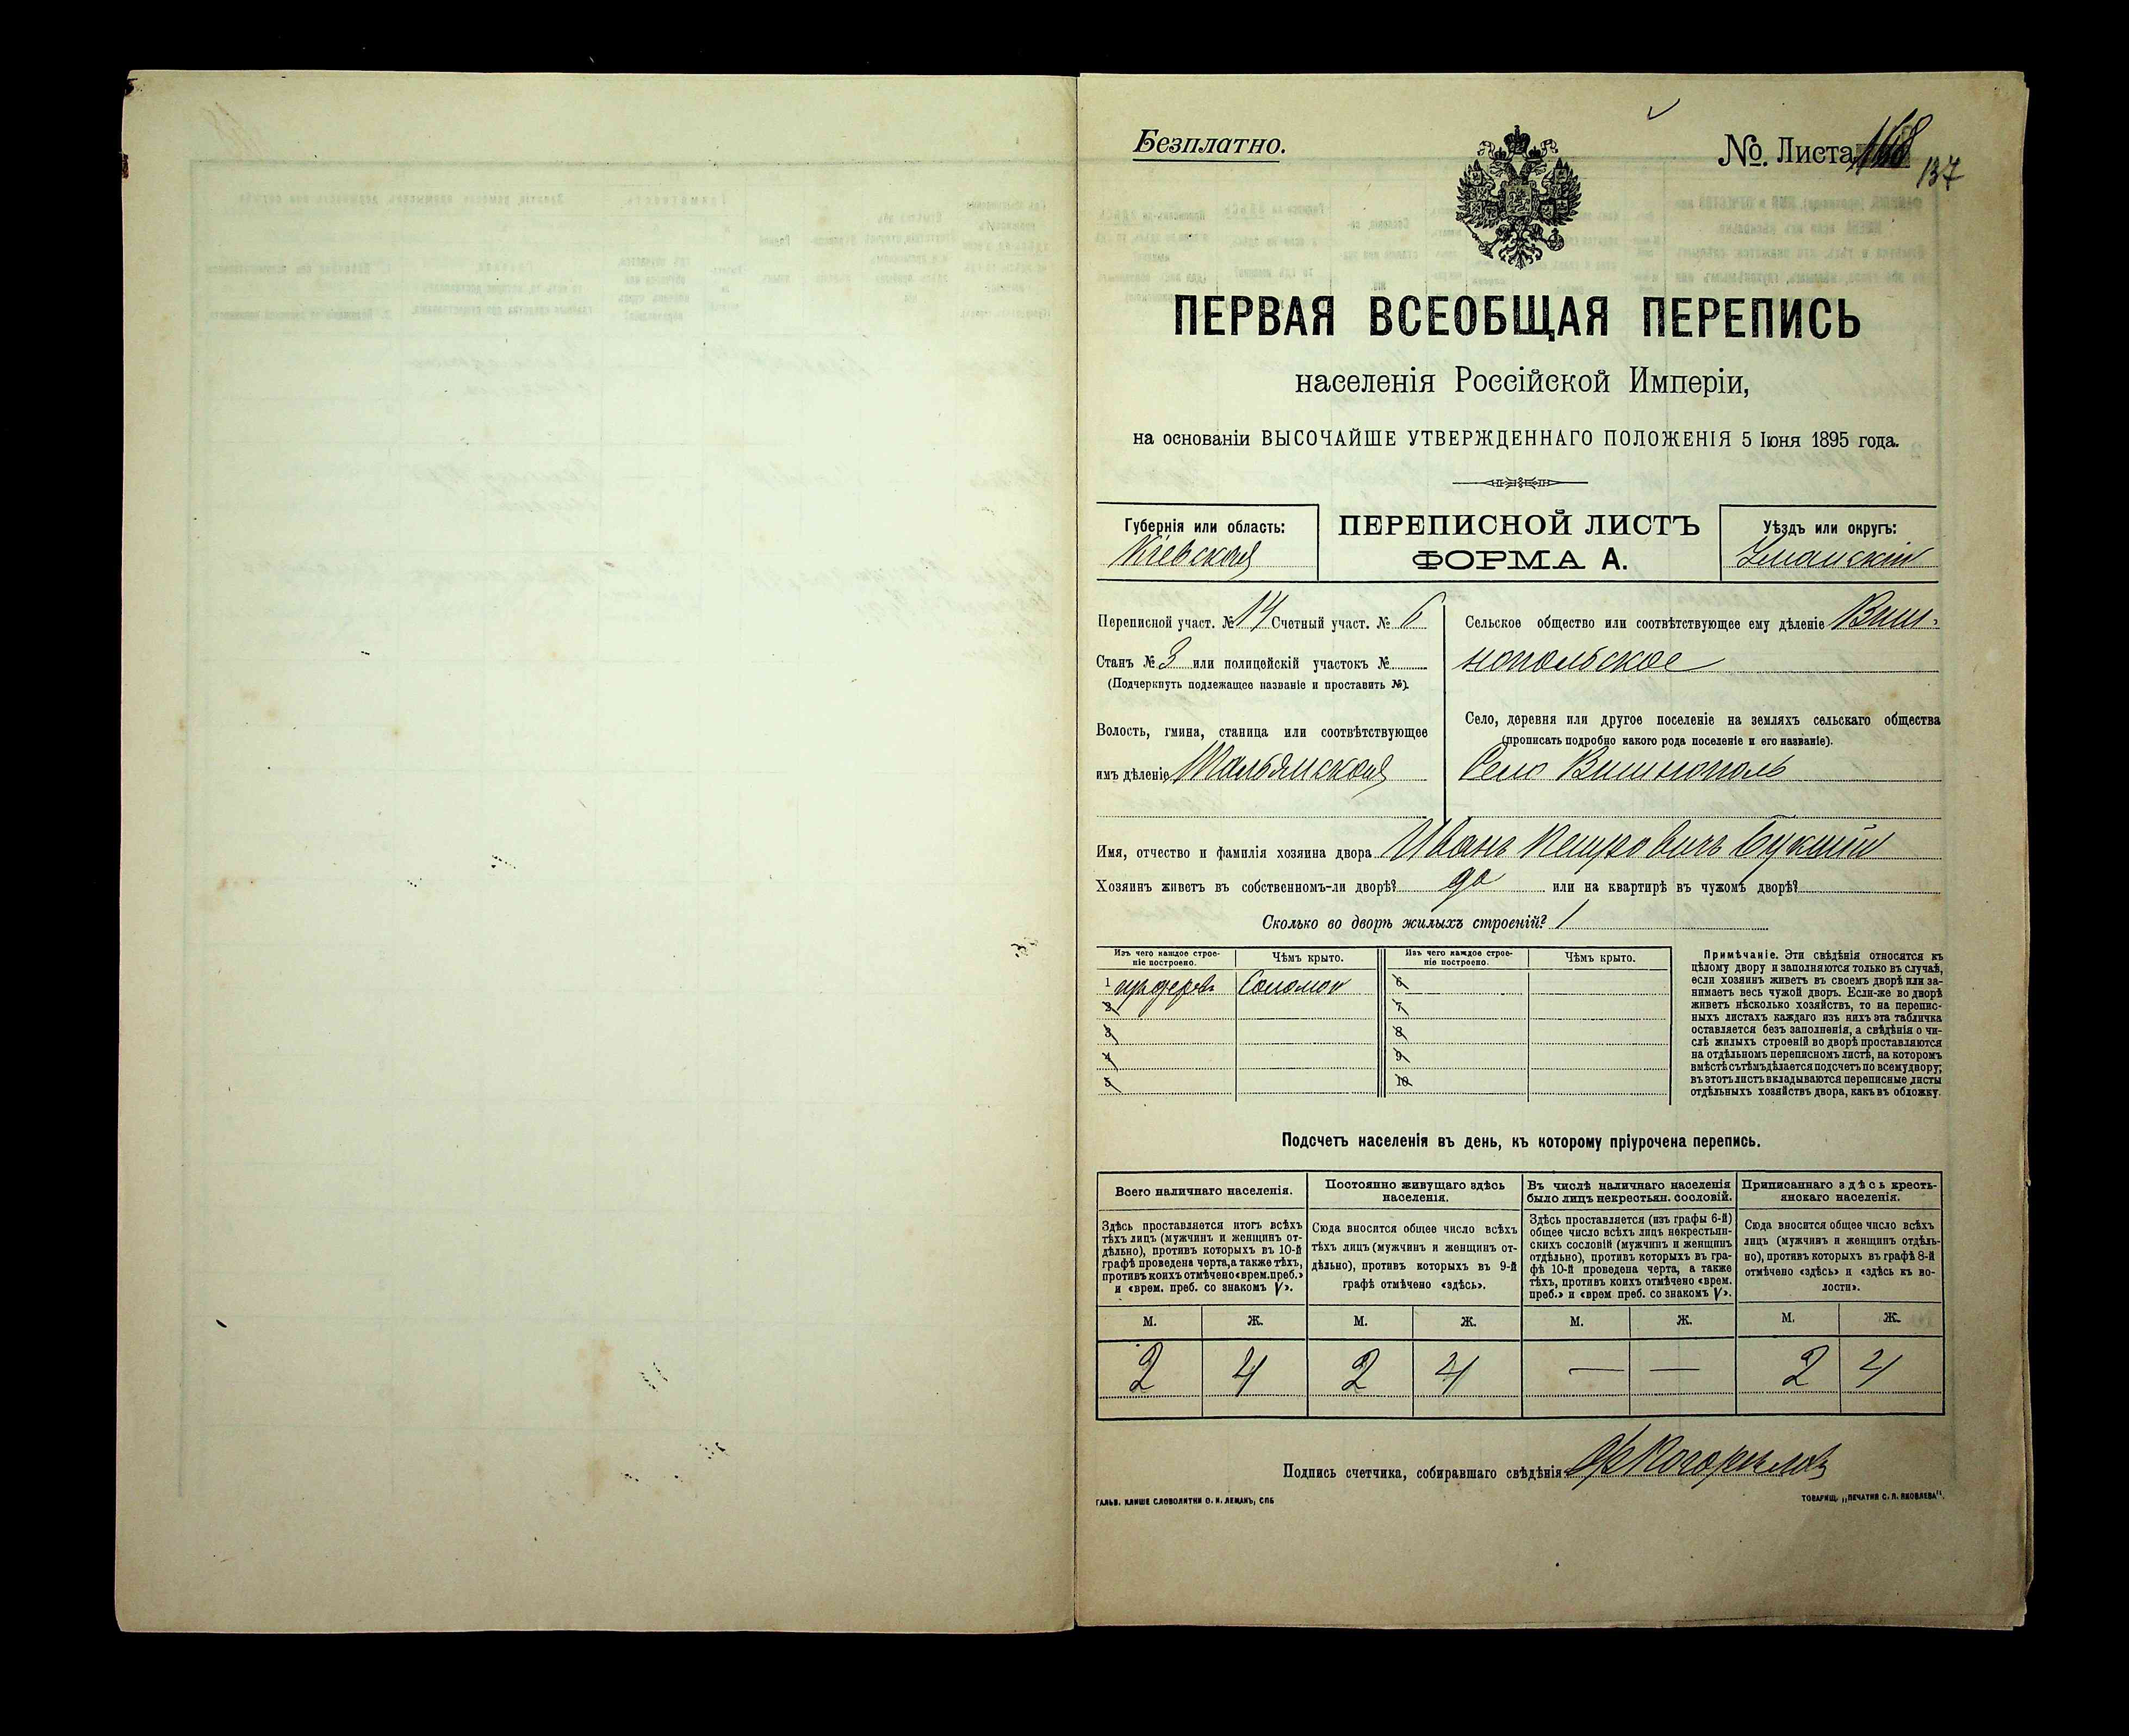 Безплатно.
№. Листа 168
137
ПЕРВАЯ ВСЕОБЩАЯ ПЕРЕПИСЬ
населенія Россійской Имперіи,
на основаніи ВЫСОЧАЙШЕ УТВЕРЖДЕННАГО ПОЛОЖЕНІЯ 5 Іюня 1895 года.
Губернія или область:
Кіевская
ПЕРЕПИСНОЙ ЛИСТЪ
ФОРМА А.
Уѣздъ или округъ:
Уманскій
Переписной участ. № 14 Счетный участ. № 6
Станъ № 3 или полицейскій участокъ №
(Подчеркнуть подлежащее названіе и проставить №).
Волость, гмина, станица или соотвѣтствующее
имъ дѣленіе
Сельское общество или соотвѣтствующее ему дѣленіе Виш-
нопольское
Село, деревня или другое поселеніе на земляхъ сельскаго общества
(прописать подробно какого рода поселеніе и его названіе).
Село Вишнополь
Имя, отчество и фамилія хозяина двора Иванъ Петровичъ
Хозяинъ живетъ въ собственномъ-ли дворѣ? да или на квартирѣ въ чужомъ дворѣ?
Сколько во дворѣ жилыхъ строеній? 1
Изъ чего каждое строе-
ніе построено.
Чѣмъ крыто.
Изъ чего каждое строе-
ніе построено.
Чѣмъ крыто.
1 изъ дерева Соломой
6
2
7
3
8
4
9
5
10
Примѣчаніе. Эти свѣдѣнія относятся къ
цѣлому двору и заполняются только въ случаѣ,
если хозяинъ живетъ въ своемъ дворѣ или за-
нимаетъ весь чужой дворъ. Если-же во дворѣ
живетъ нѣсколько хозяйствъ, то на перепис-
ныхъ листахъ каждаго изъ нихъ эта табличка
оставляется безъ заполненія, а свѣдѣнія о чи-
слѣ жилыхъ строеній во дворѣ проставляются
на отдѣльномъ переписномъ листѣ, на которомъ
вмѣстѣ съ тѣмъ дѣлается подсчетъ по всему двору;
въ этотъ листъ вкладываются переписные листы
отдѣльныхъ хозяйствъ двора, какъ въ обложку.
Подсчетъ населенія въ день, къ которому пріурочена перепись.
Всего наличнаго населенія.
Здѣсь проставляется итогъ всѣхъ
тѣхъ лицъ (мужчинъ и женщинъ от-
дѣльно), противъ которыхъ въ 10-й
графѣ проведена черта, а также тѣхъ,
противъ коихъ отмѣчено «врем. преб.»
и «врем. преб. со знакомъ V».
Постоянно живущаго здѣсь
населенія.
Сюда вносится общее число всѣхъ
тѣхъ лицъ (мужчинъ и женщинъ от-
дѣльно), противъ которыхъ въ 9-й
графѣ отмѣчено «здѣсь».
Въ числѣ наличнаго населенія
было лицъ некрестьян. сословій.
Здѣсь проставляется (изъ графы 6-й)
общее число всѣхъ лицъ некрестьян-
скихъ сословій (мужчинъ и женщинъ
отдѣльно), противъ которыхъ въ гра-
фѣ 10-й проведена черта, а также
тѣхъ, противъ коихъ отмѣчено «врем.
преб.» и «врем преб. со знакомъ V».
Приписаннаго здѣсь кресть-
янскаго населенія.
Сюда вносится общее число всѣхъ
лицъ (мужчинъ и женщинъ отдѣль-
но), противъ которыхъ въ графѣ 8-й
отмѣчено «здѣсь» и «здѣсь къ во-
лости».
М. Ж. М. Ж. М. Ж. М. Ж.
2 4 2 4 — — 2 4
Подпись счетчика, собиравшаго свѣдѣнія
ГАЛЬВ. КЛИШЕ СЛОВОЛИТНИ О. И. ЛЕМАНЪ, СПБ
ТОВАРИЩ. „ПЕЧАТНЯ С. П. ЯКОВЛЕВА".